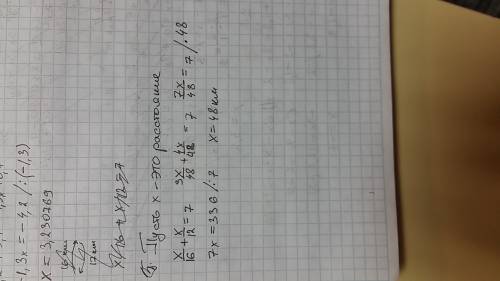 -1,3x = -4,2 /:(-1,3)
x = 3,230769
17 км
Пусть x - это расстояние
x/16 + x/12 = 7 3x/48 + 4x/48 = 7 7x/48 = 7 /·48
7x = 336 /:7 x = 48 км